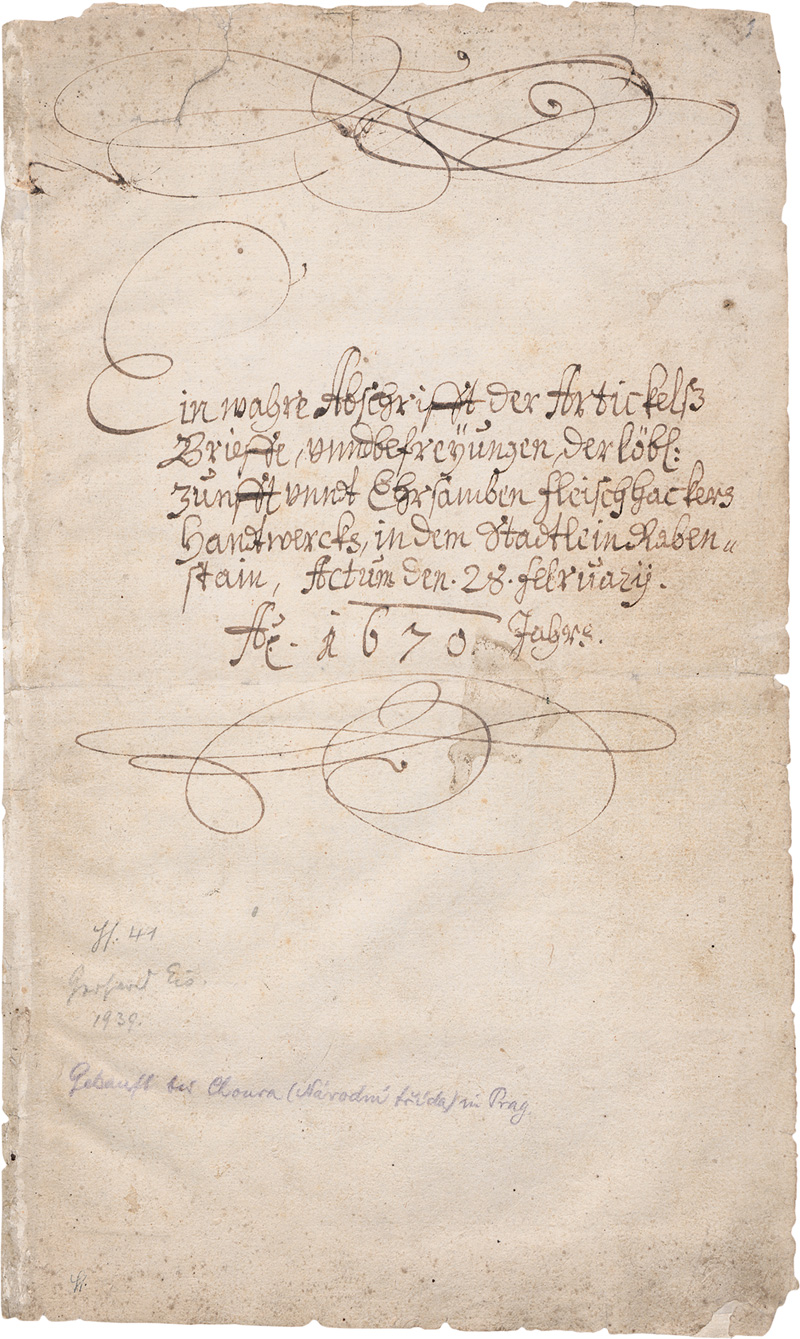 1
Ein wahre Abschrifft der Artickelß
Brieffe, vnnd befreÿungen, der löbl:
Zunfft vnnd Ehrsamben fleischhackers
Handtwercks, in dem Stadtlein Raben=
stain, Actum den. 28. february.
Aº. 1670. Jahrs.
Hs. 41
Gerhard Eis.
1939.
Gekauft bei Choura (Národní třída) in Prag.